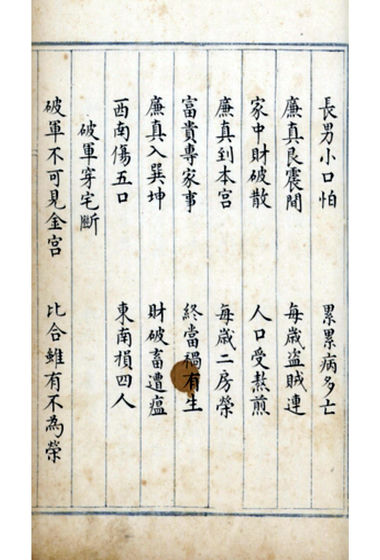 長男小口怕　累累病多亡
廉真艮震間　每歲盜賊連
家中財破散　人口受熬煎
廉真到本宮　每歲二房榮
富貴專家事　終當禍有生
廉真入巽坤　財破畜遭瘟
西南傷五口　東南損四人
破軍穿宅斷
破軍不可見金宮　比合雖有不為榮